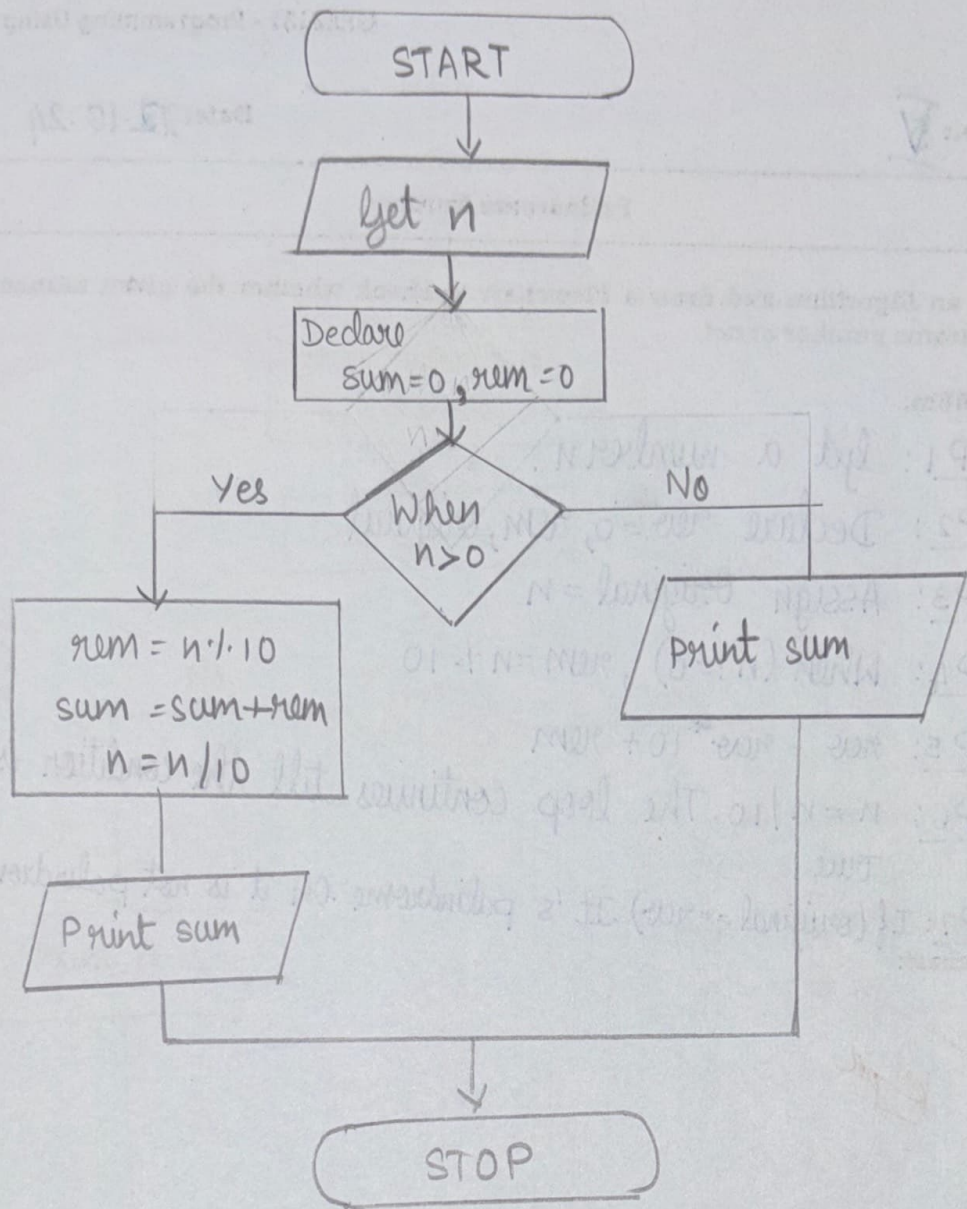 START
Get n
Declare
sum=0, rem=0
Yes
No
When
n>0
rem = n%10
sum = sum+rem
n=n/10
print sum
Print sum
STOP